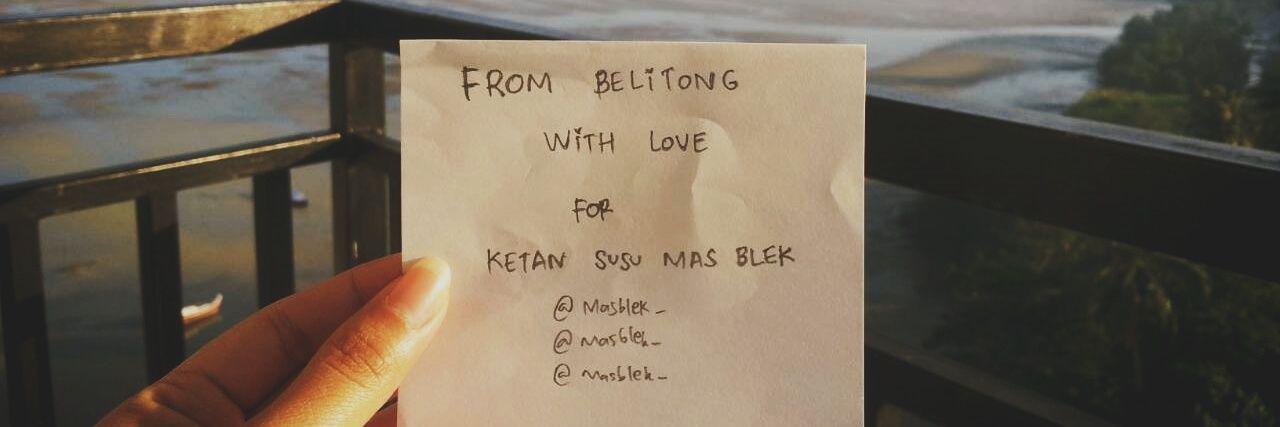 FROM BELITONG
WITH LOVE
FOR
KETAN SUSU MAS BLEK
@ Masblek_
@ Masblek_
@ Masblek_